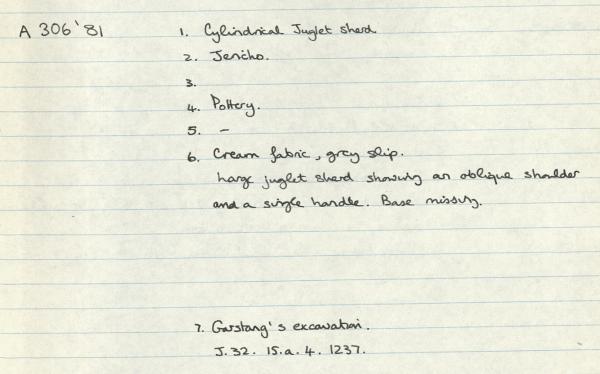 A 306'81
1. Cylindrical Juglet sherd.
2. Jericho.
3.
4. Pottery.
5. –
6. Cream fabric, grey slip.
Large juglet sherd showing an oblique shoulder
and a single handle. Base missing.
7. Garstang's excavation.
J. 32. 15.a. 4. 1237.